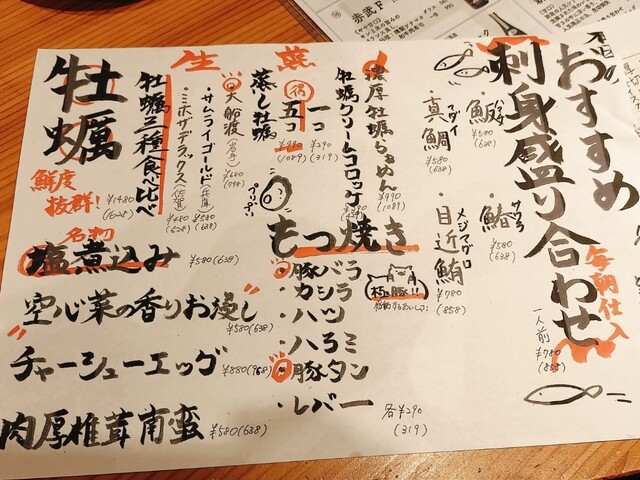 おすすめ
刺身盛り合わせ
毎朝仕入
一人前
¥780
(858)
・鰤
¥580
(638)
・鰆
サワラ
¥580
(638)
・真鯛
マダイ
¥580
(638)
・目近鮪
メジマグロ
¥780
(858)
牡蠣
鮮度
抜群!
生
牡蠣三種食べ比べ
¥1480
(1628)
・ミホザデラックス
¥480
(528)
・サムライゴールド(兵庫)
¥580
(638)
・大船渡(岩手)
¥680
(748)
蒸
蒸し牡蠣
プリップリ!
一コ
¥290
(319)
得
五コ
¥990
(1089)
牡蠣クリームコロッケ
濃厚牡蠣らぁめん
¥990
(1089)
もつ焼き
極豚!!
・豚バラ
・カシラ
・ハツ
・ハラミ
・豚タン
・レバー
各¥290
(319)
名物
塩煮込み ¥580(638)
空心菜の香りお浸し ¥580(638)
チャーシューエッグ ¥880(968)
肉厚椎茸南蛮 ¥580(638)
赤武